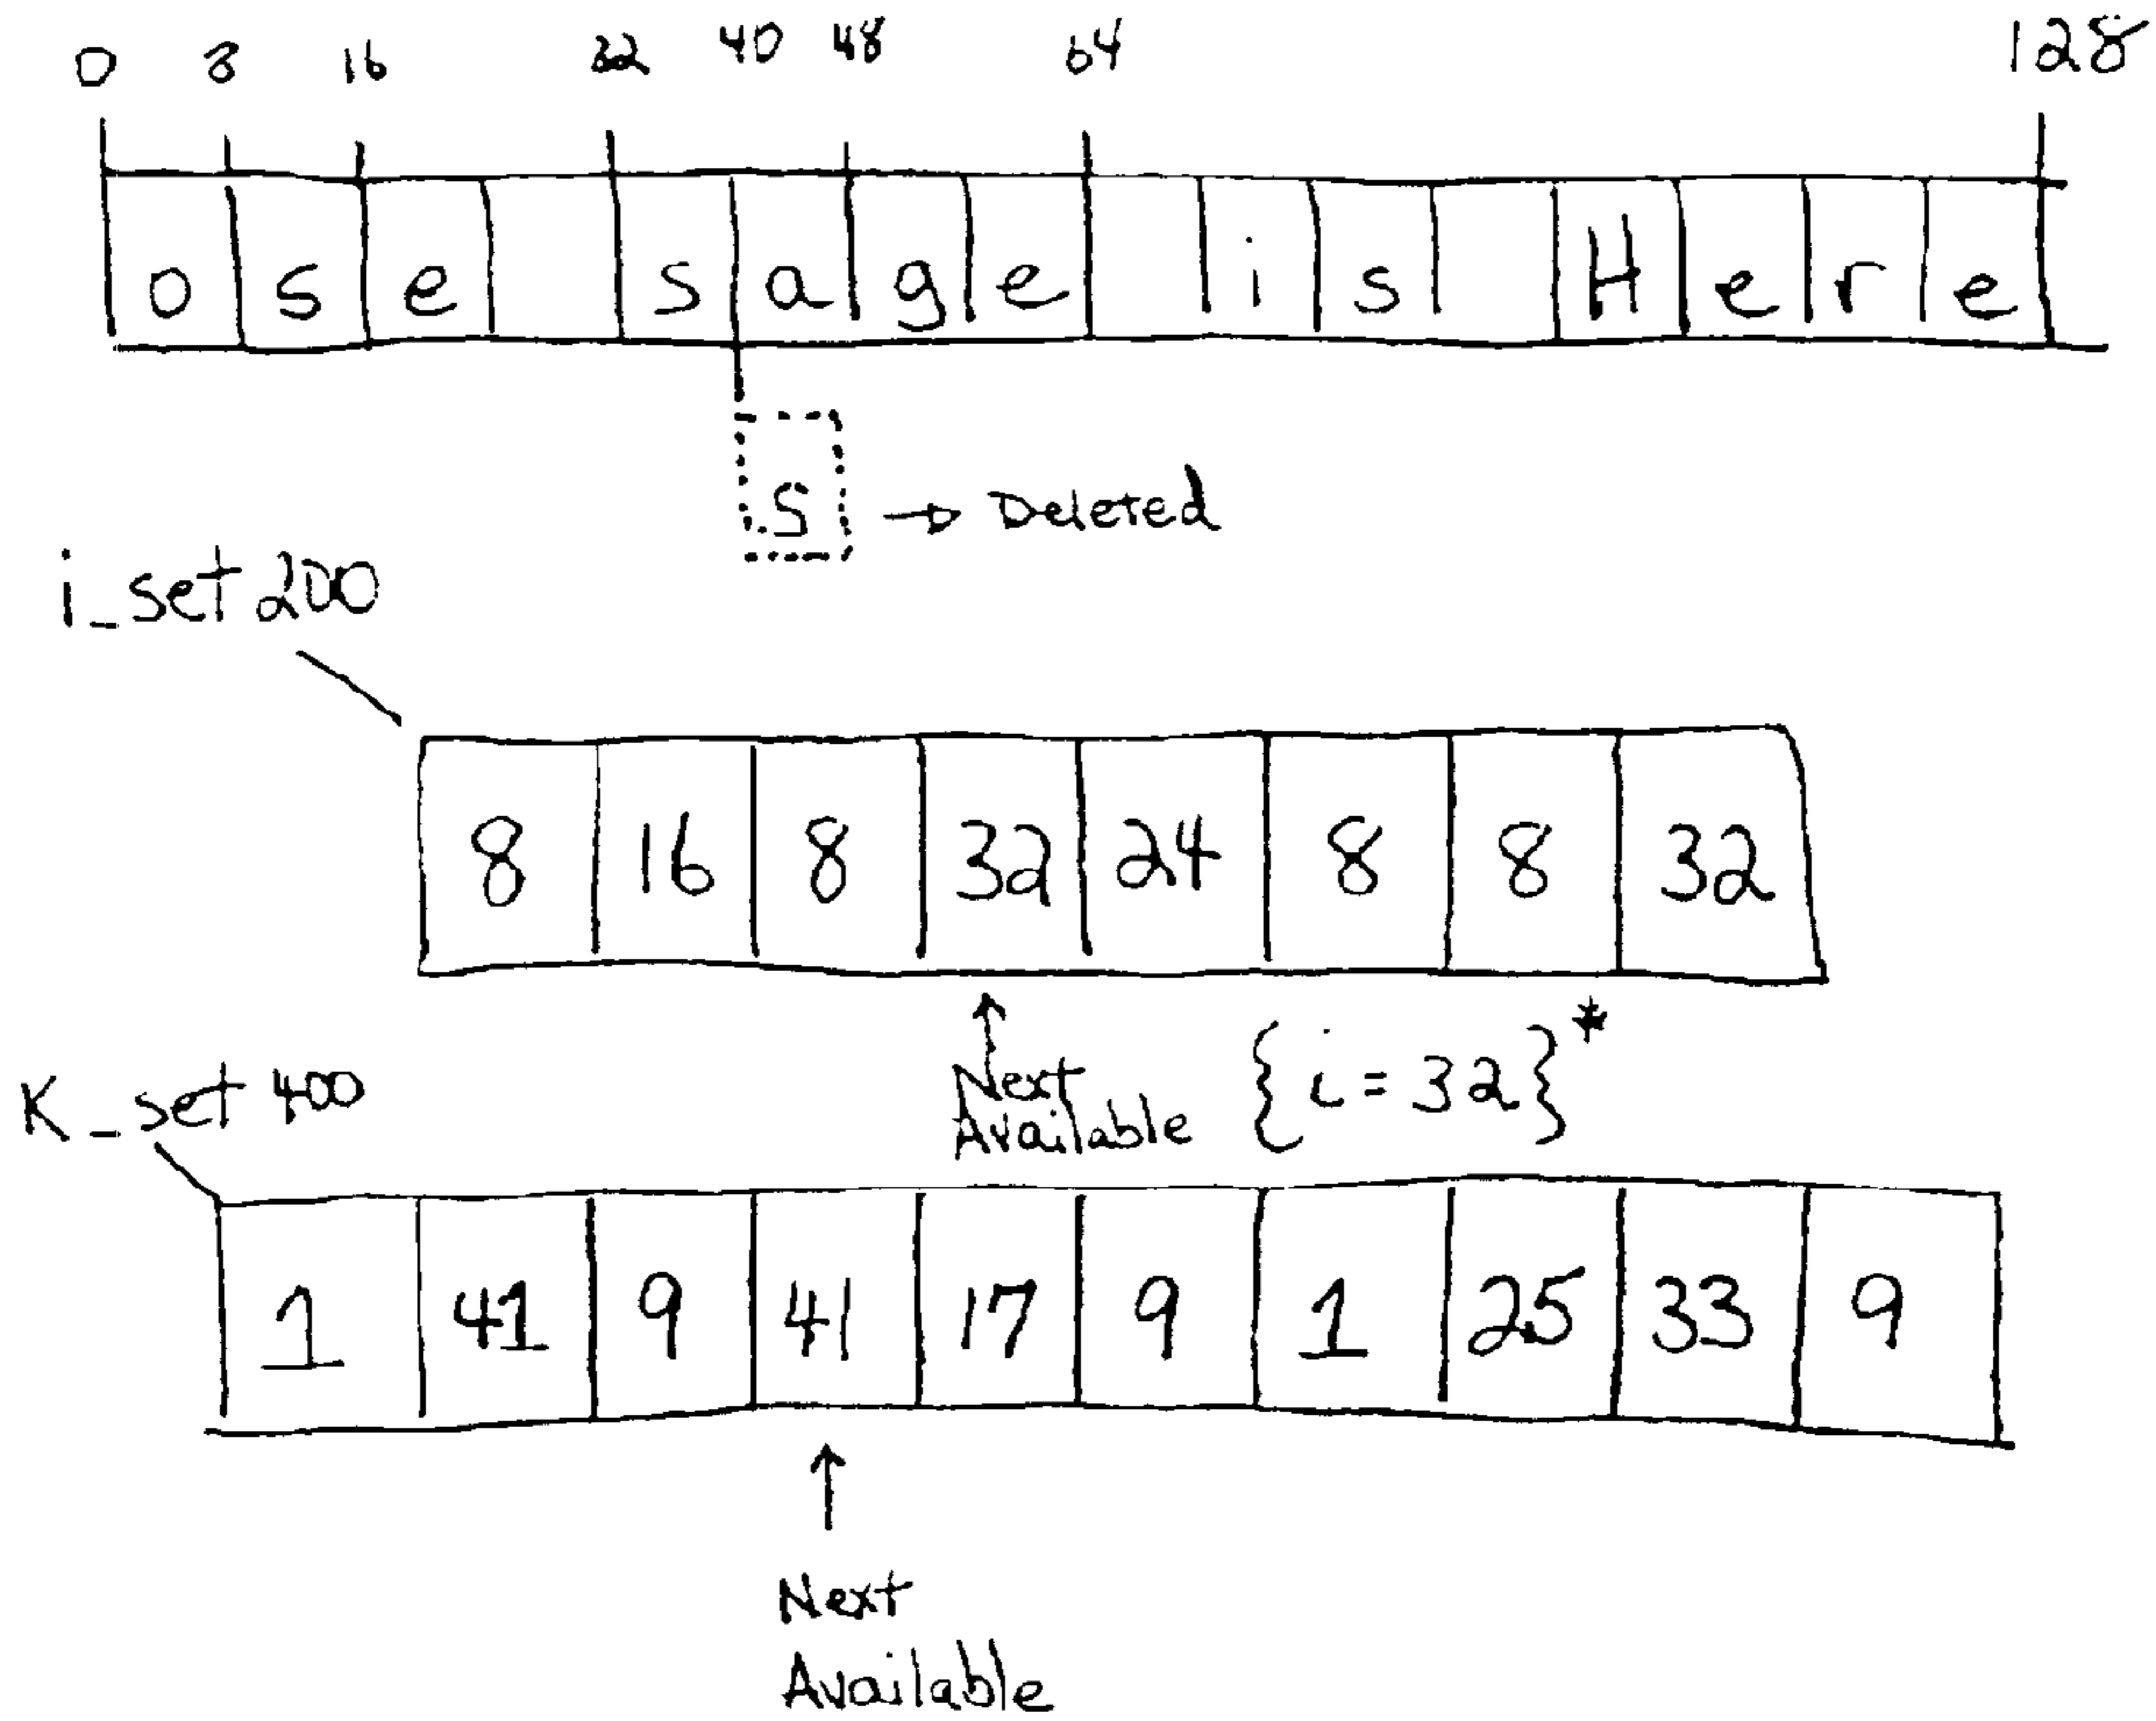 0 8 16 22 40 48 64 128
o s e s a g e i s H e r e
S → Deleted
i_set 200
8 16 8 32 24 8 8 32
Next {i=32}*
Available
K_set 400
1 41 9 41 17 9 1 25 33 9
Next
Available